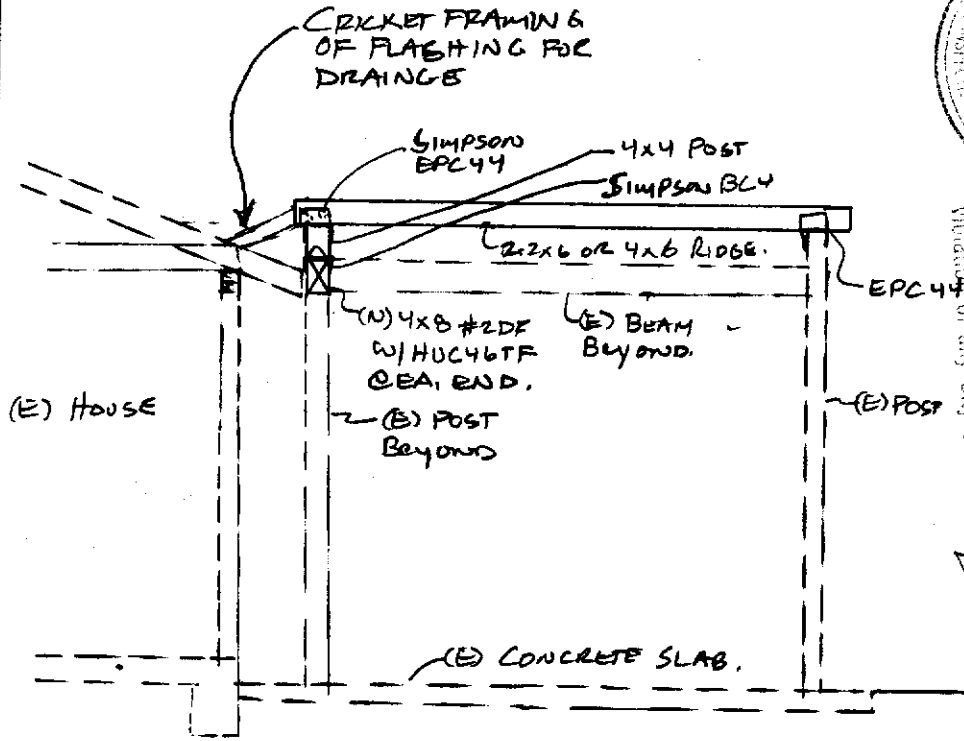 CRICKET FRAMING
OF FLASHING FOR
DRAINGE
SIMPSON
EPC44
4x4 POST
SIMPSON BC4
2-2x6 OR 4x6 RIDGE.
EPC44
(N) 4x8 #2DF
W/ HUC46TF
@ EA. END.
(E) BEAM
BEYOND.
(E) HOUSE
(E) POST
BEYOND
(E) POST
(E) CONCRETE SLAB.